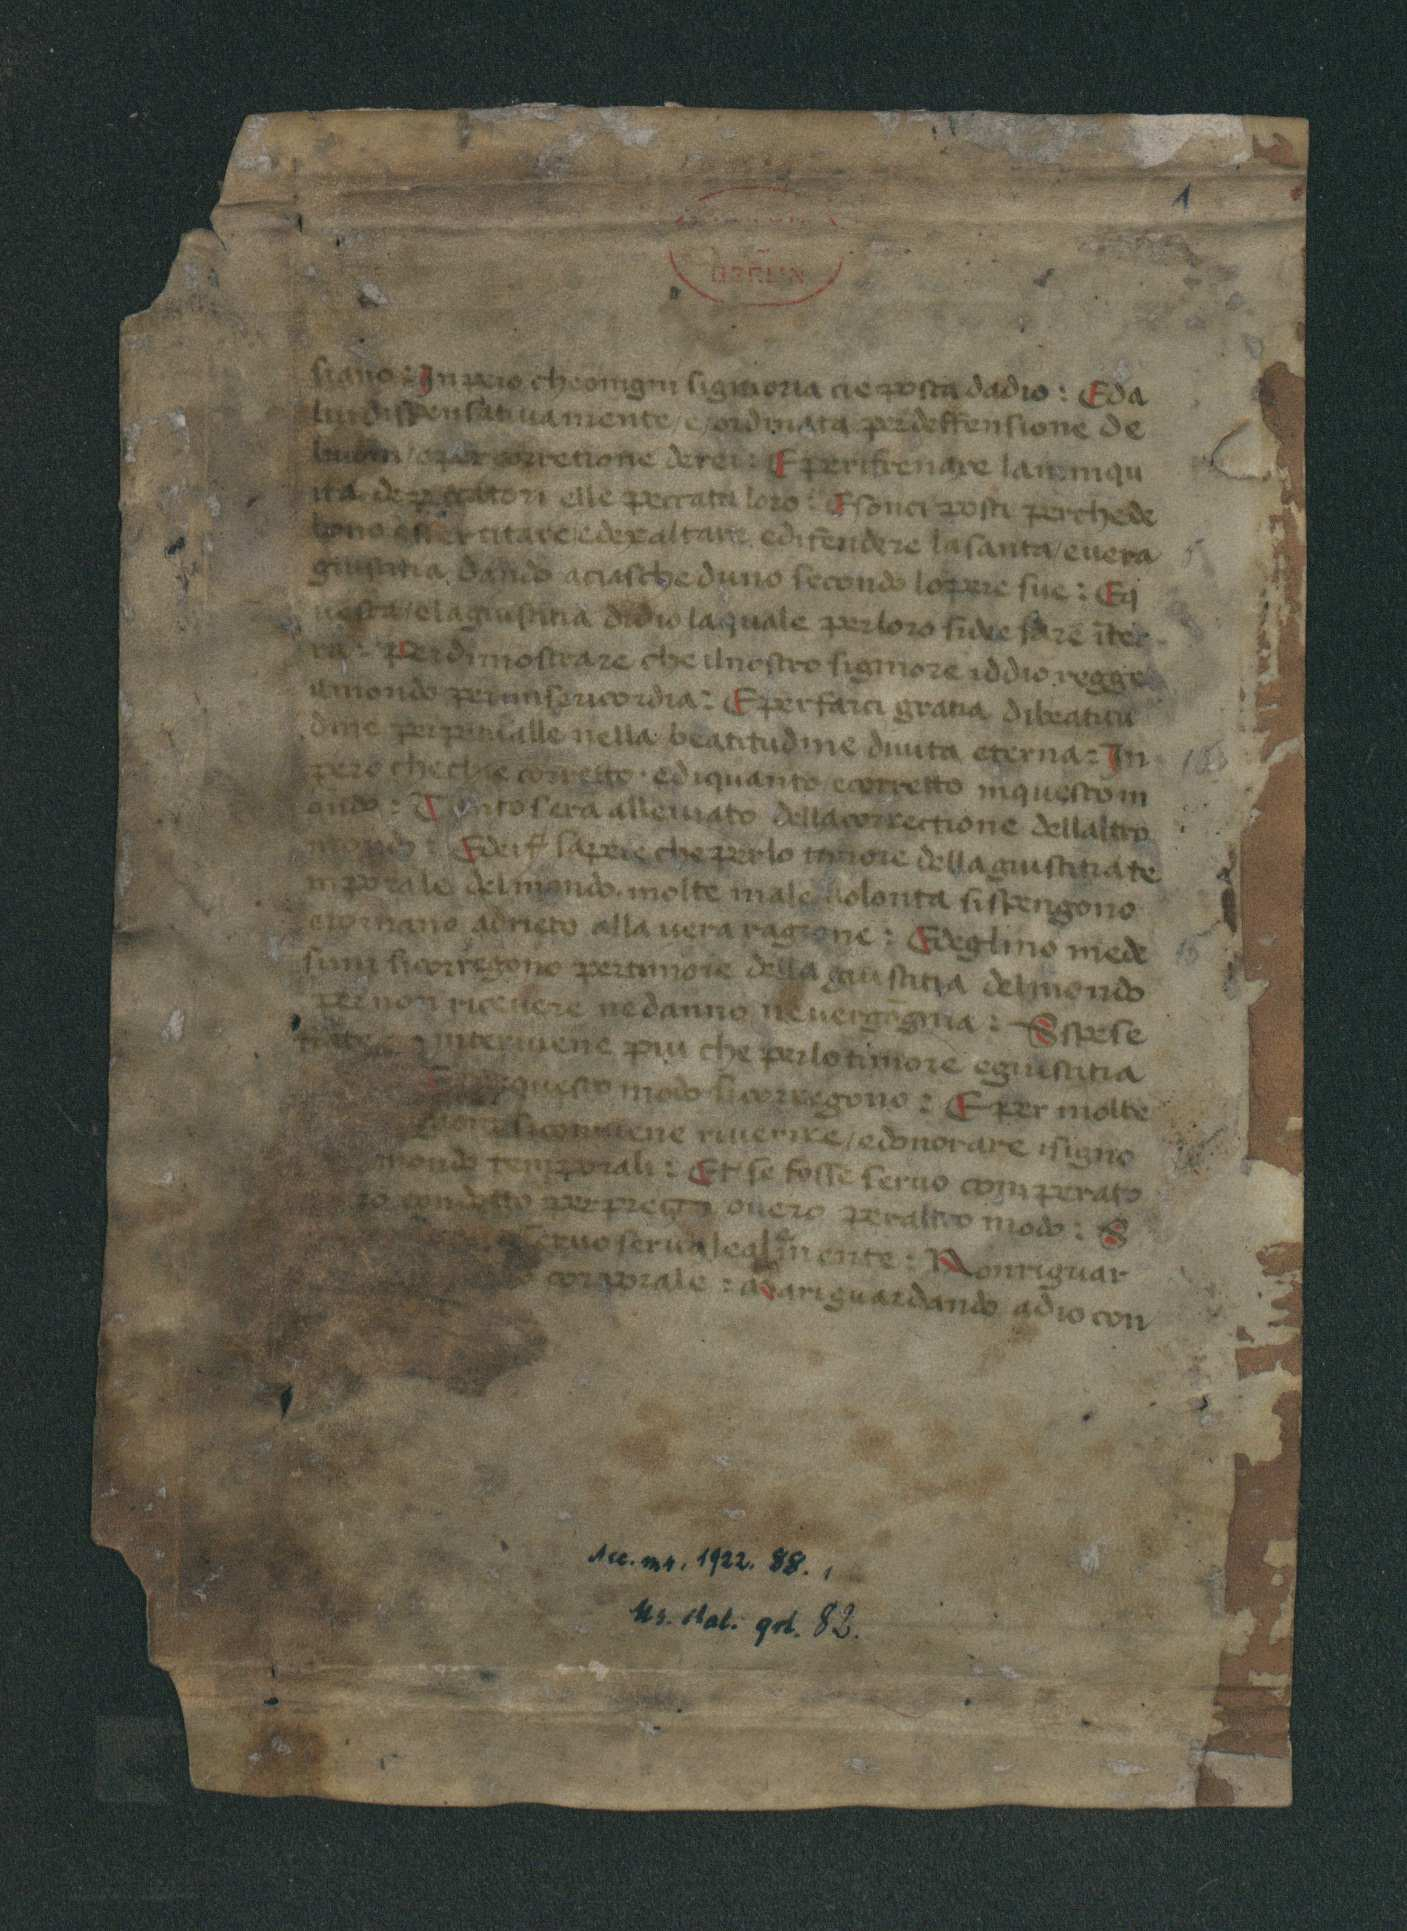 1
BERLIN
siano : Inpero cheongni signioria cie posta dadio : Eda
lui dispensativamente / e / ordinata perdeffensione de
buoni / eper corretione derei : Eperifrenare la niqu
ita depeccatori elle peccata loro : Esonci posti perchede
bono essercitare / edexaltare edifendere lasanta / evera
giustitia dando aciascheduno secondo lopere sue : Eq
uesta / elagiustitia didio laquale perloro sidee fare iter
ra : Perdimostrare che ilnostro signiore iddio regge
ilmondo permisericordia : Eperfarci gratia dibeatitu
dine perpetualle nella beatitudine divita eterna : In
pero cheche corretto ediquanto / ecorretto inquestom
ondo : Tanto sera alleviato dellacorrectione dellaltro
mondo : Edei sapere cheperlo timore dellagiustitiate
mporale delmondo molte male volonta sispengono
etornano adrieto alla vera ragione : Edeglino mede
simi sicorregono pertimore della giustitia delmondo
pernon ricevere nedanno nevergognia : Espese
fiate interviene piu che perlotimore egiustitia
questo modo sicorregono : Eper molte
siconviene riverire / edonorare isigno
mondo temporali : Et se fosse servo comperato
ro condotto perpreggi overo peraltro modo : S
servo serva lealmente : Nonriguar
corporale : Mariguardando adio con
5
10
15
Acc. ms. 1922. 88.
Ms. ital. qrt. 82.